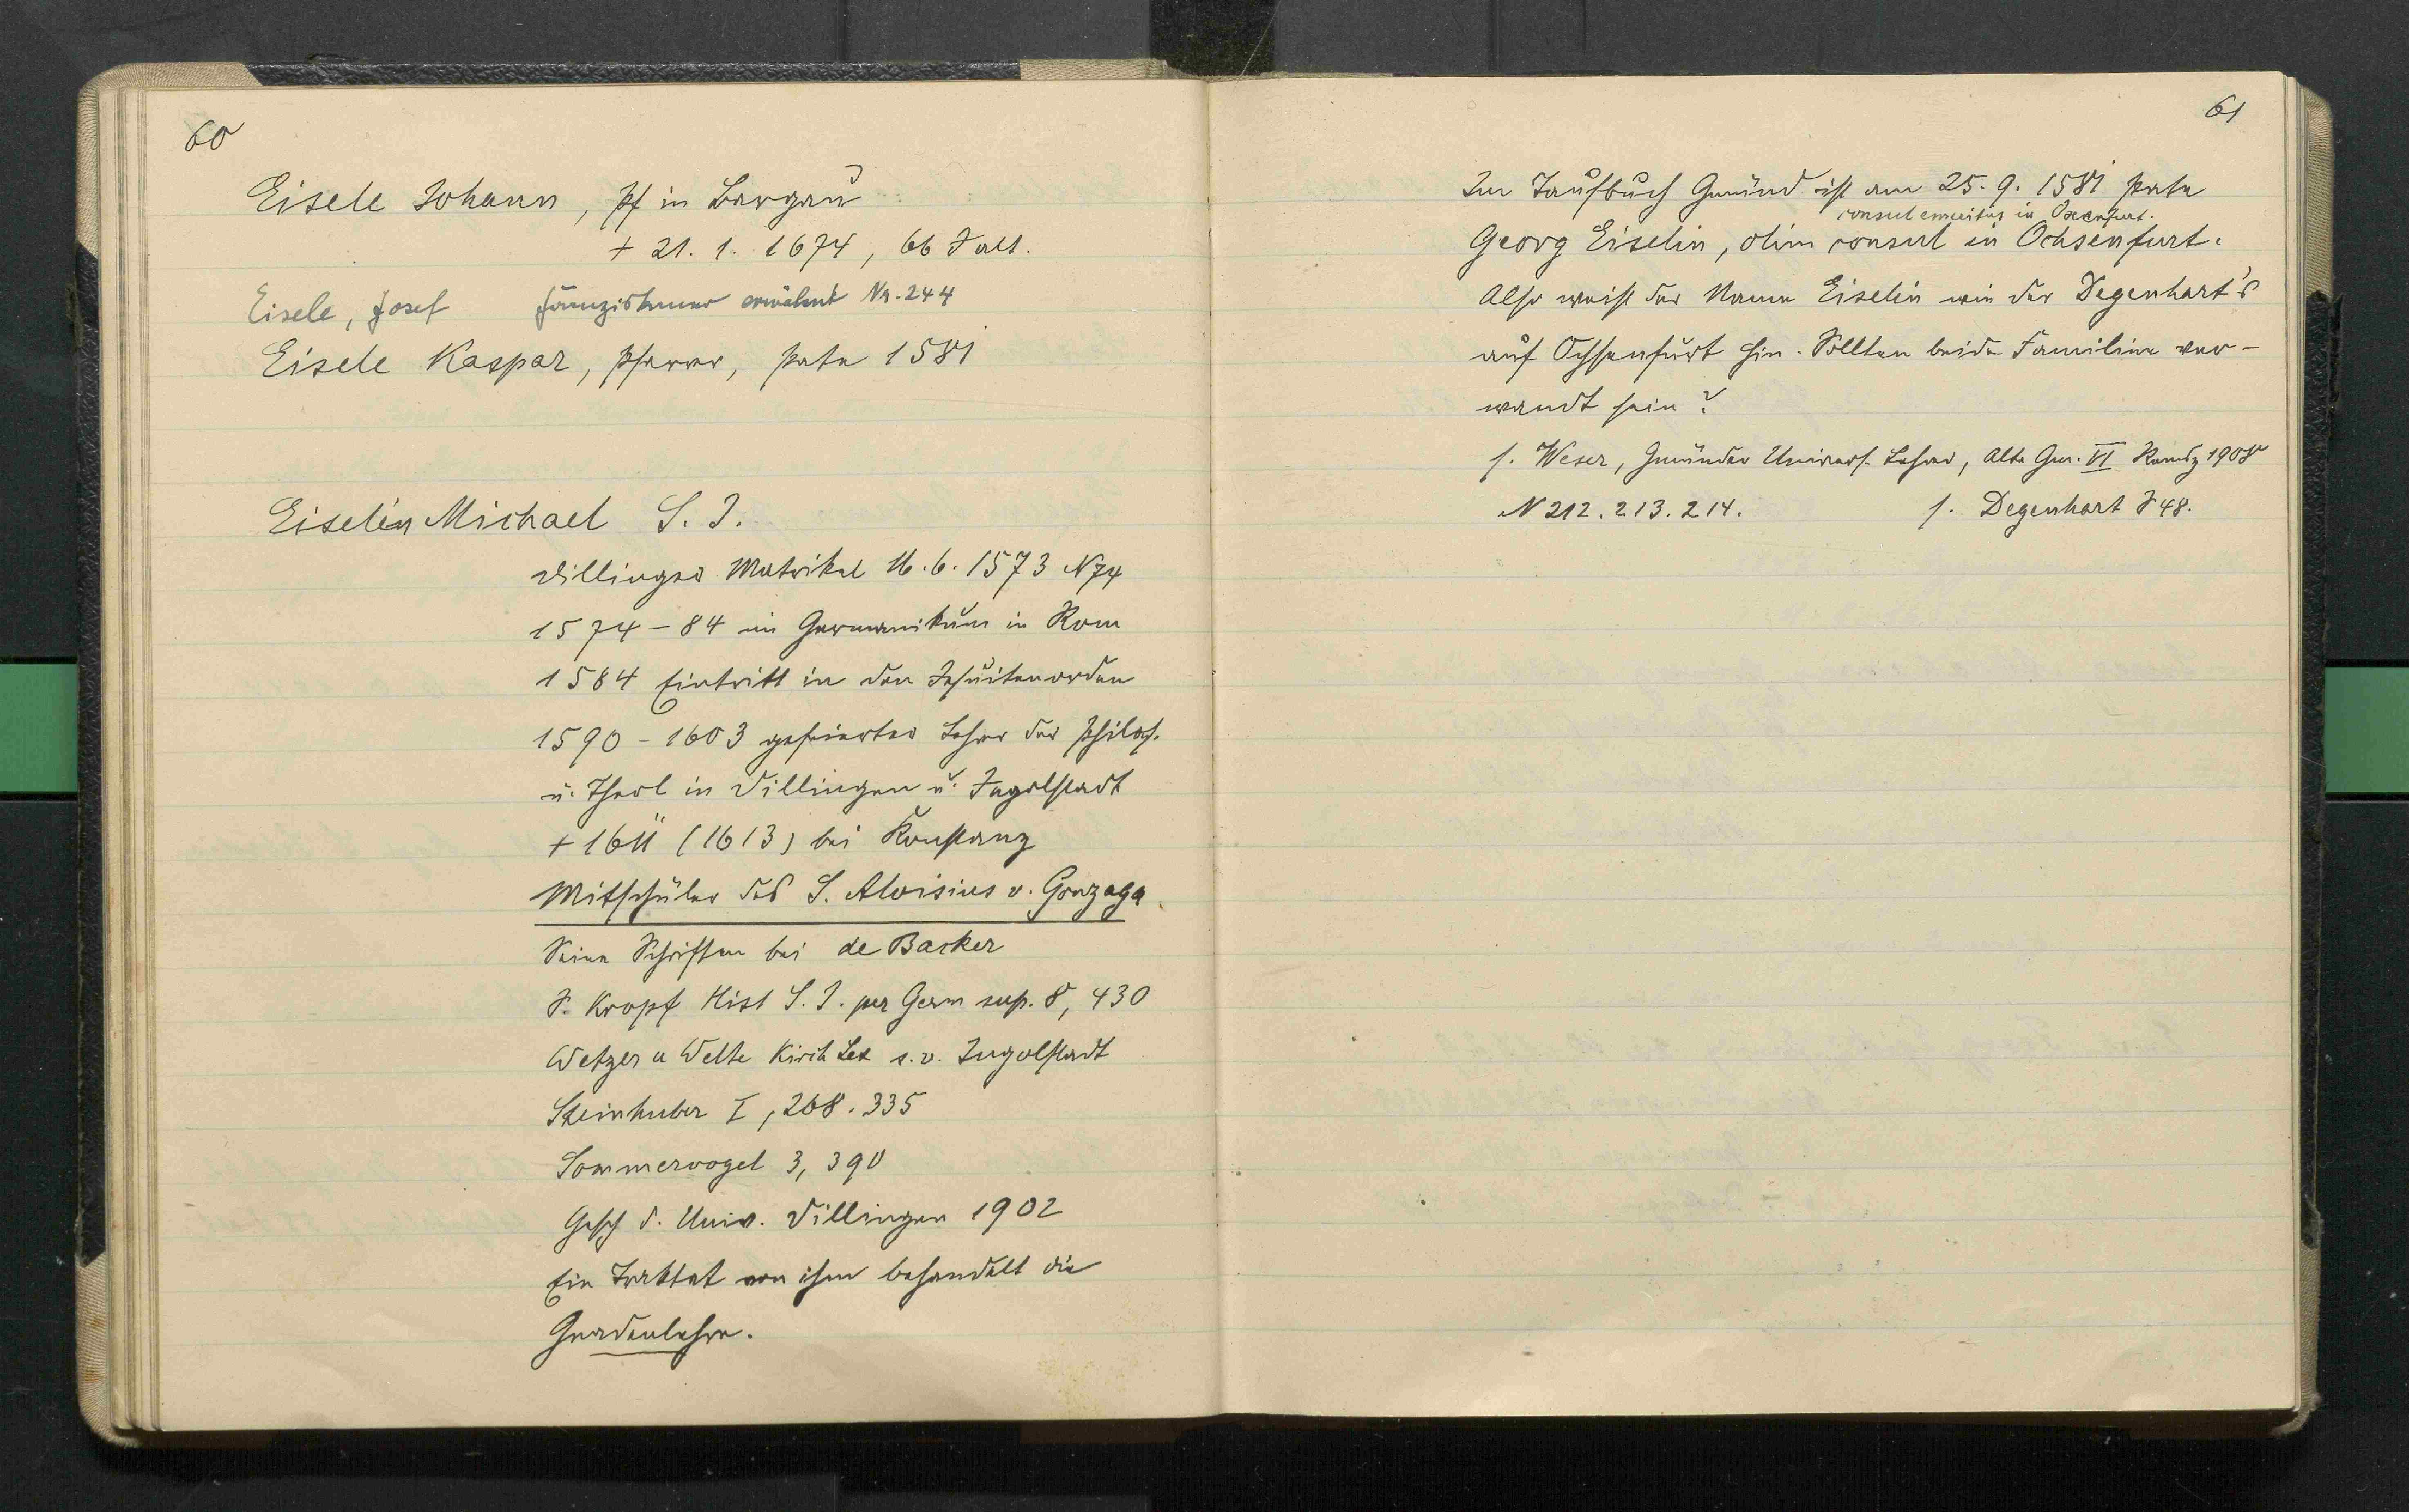 60
Eisele Johann, Pf in Bargau
+ 21. 1. 1674, 66 J alt.
Eisele, Josef Franziskaner erwähnt Na. 244
Eisele Kaspar, Pfarrer, Pate 1581
Eiselin Michael S. J.
Dillinger Matrikel 16. 6. 1573 N 74
1574 - 84 im Germanikum in Rom
1584 Eintritt in den Jesuitenorden
1590 - 1603 gefeierter Lehrer der Philos.
u. Theol in Dillingen u. Ingolstadt
+ 1611 (1613) bei Konstanz
Mitschüler des S. Aloisius v. Gonzaga
Seine Schriften bei de Backer
S. Kropf Hist S. J. per Germ sup. 8, 430
Wetzer u Welte Kirch Lex s. v. Ingolstadt
Steinhuber I, 268. 335
Sommervogel 3, 390
Gesch d. Univ. Dillingen 1902
Ein Traktat von ihm behandelt die
Gnadenlehre.
61
Im Taufbuch Gmünd ist am 25. 9. 1581 Pate
consul emeritus in Oxenfurt.
Georg Eiselin, olim consul in Ochsenfurt.
Also weist der Name Eiselin wie der Degenhart's
auf Ochsenfurt hin. Sollten beide Familien ver-
wandt sein?
s. Weser, Gmünder Univers. Lehrer, Alte Gm. VI 1908
N 212. 213. 214. s. Degenhart S 48.